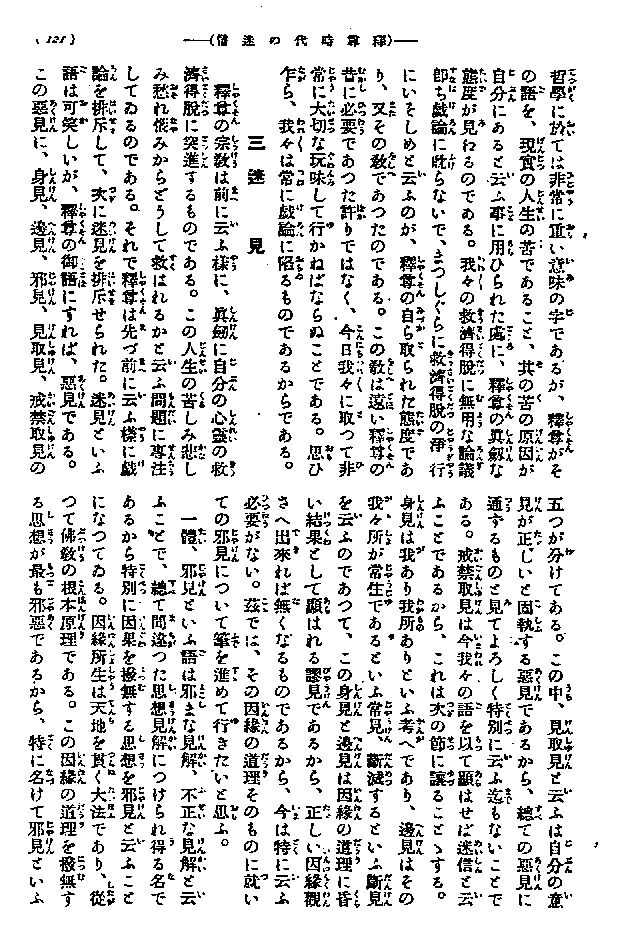 ――(釋尊時代の迷信)――
(121)
哲學に於ては非常に重い意味の字であるが、釋尊がそ
の語を、現實の人生の苦であること、其の苦の原因が
自分にあると云ふ事に用ひられた處に、釋尊の眞劒な
態度が見わるのである。我々の救濟得脫に無用な論議
卽ち戲論に耽らないで、まつしぐらに救濟得脫の淨行
にいそしめと云ふのが、釋尊の自ら取られた態度であ
り、又その敎であつたのである。この敎は遠い釋尊の
昔に必要であつた許りではなく、今日我々に取つて非
常に大切な玩味して行かねばならぬことである。思ひ
乍ら、我々は常に戲論に陷るものであるからである。
三 迷見
釋尊の宗敎は前に云ふ樣に、眞劒に自分の心靈の救
濟得脫に突進するものである。この人生の苦しみ悲し
み愁れ惱みからどうして救はれるかと云ふ問題に專注
してゐるのである。それで釋尊は先づ前に云ふ樣に戲
論を排斥して、次に迷見を排斥せられた。迷見といふ
語は可笑しいが、釋尊の御語にすれば、惡見である。
この惡見に、身見、邊見、邪見、見取見、戒禁取見の
五つが分けてある。この中、見取見と云ふは自分の意
見が正しいと固執する惡見であるから、總ての惡見に
通ずるものと見てよろしく特別に云ふ迄もないことで
ある。戒禁取見は今我々の語を以て顯はせば迷信と云
ふことであるから、これは次の節に讓ることゝする。
身見は我あり我所ありといふ考へであり、邊見はその
我々所が常住であるといふ常見、斷滅するといふ斷見
を云ふのであつて、この身見と邊見は因緣の道理に昏
い結果として顯はれる謬見であるから、正しい因緣觀
さへ出來れば無くなるものであるから、今は特に云ふ
必要がない。茲では、その因緣の道理そのものに就い
ての邪見について筆を進めて行きたいと思ふ。
一體、邪見といふ語は邪まな見解、不正な見解と云
ふことで、總て間違つた思想見解につけられ得る名で
あるから特別に因果を撥無する思想を邪見と云ふこと
になつてゐる。因緣所生は天地を貫く大法であり、從
つて佛敎の根本原理である。この因緣の道理を撥無す
る思想が最も邪惡であるから、特に名けて邪見といふ